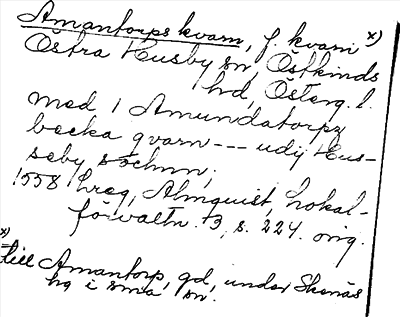 Amantorps kvarn, f. kvarn x)
Östra Husby sn, Östkinds
hd, Österg. l.
med 1 Amundatorpz
becka qvarn --- udij Hus-
seby sochnn,
1558 hreg, Almquist, Lokal-
förvaltn. 3, s. 224. orig.
x)
till Amantorp, gd, under Skenäs
hg i sma sn.